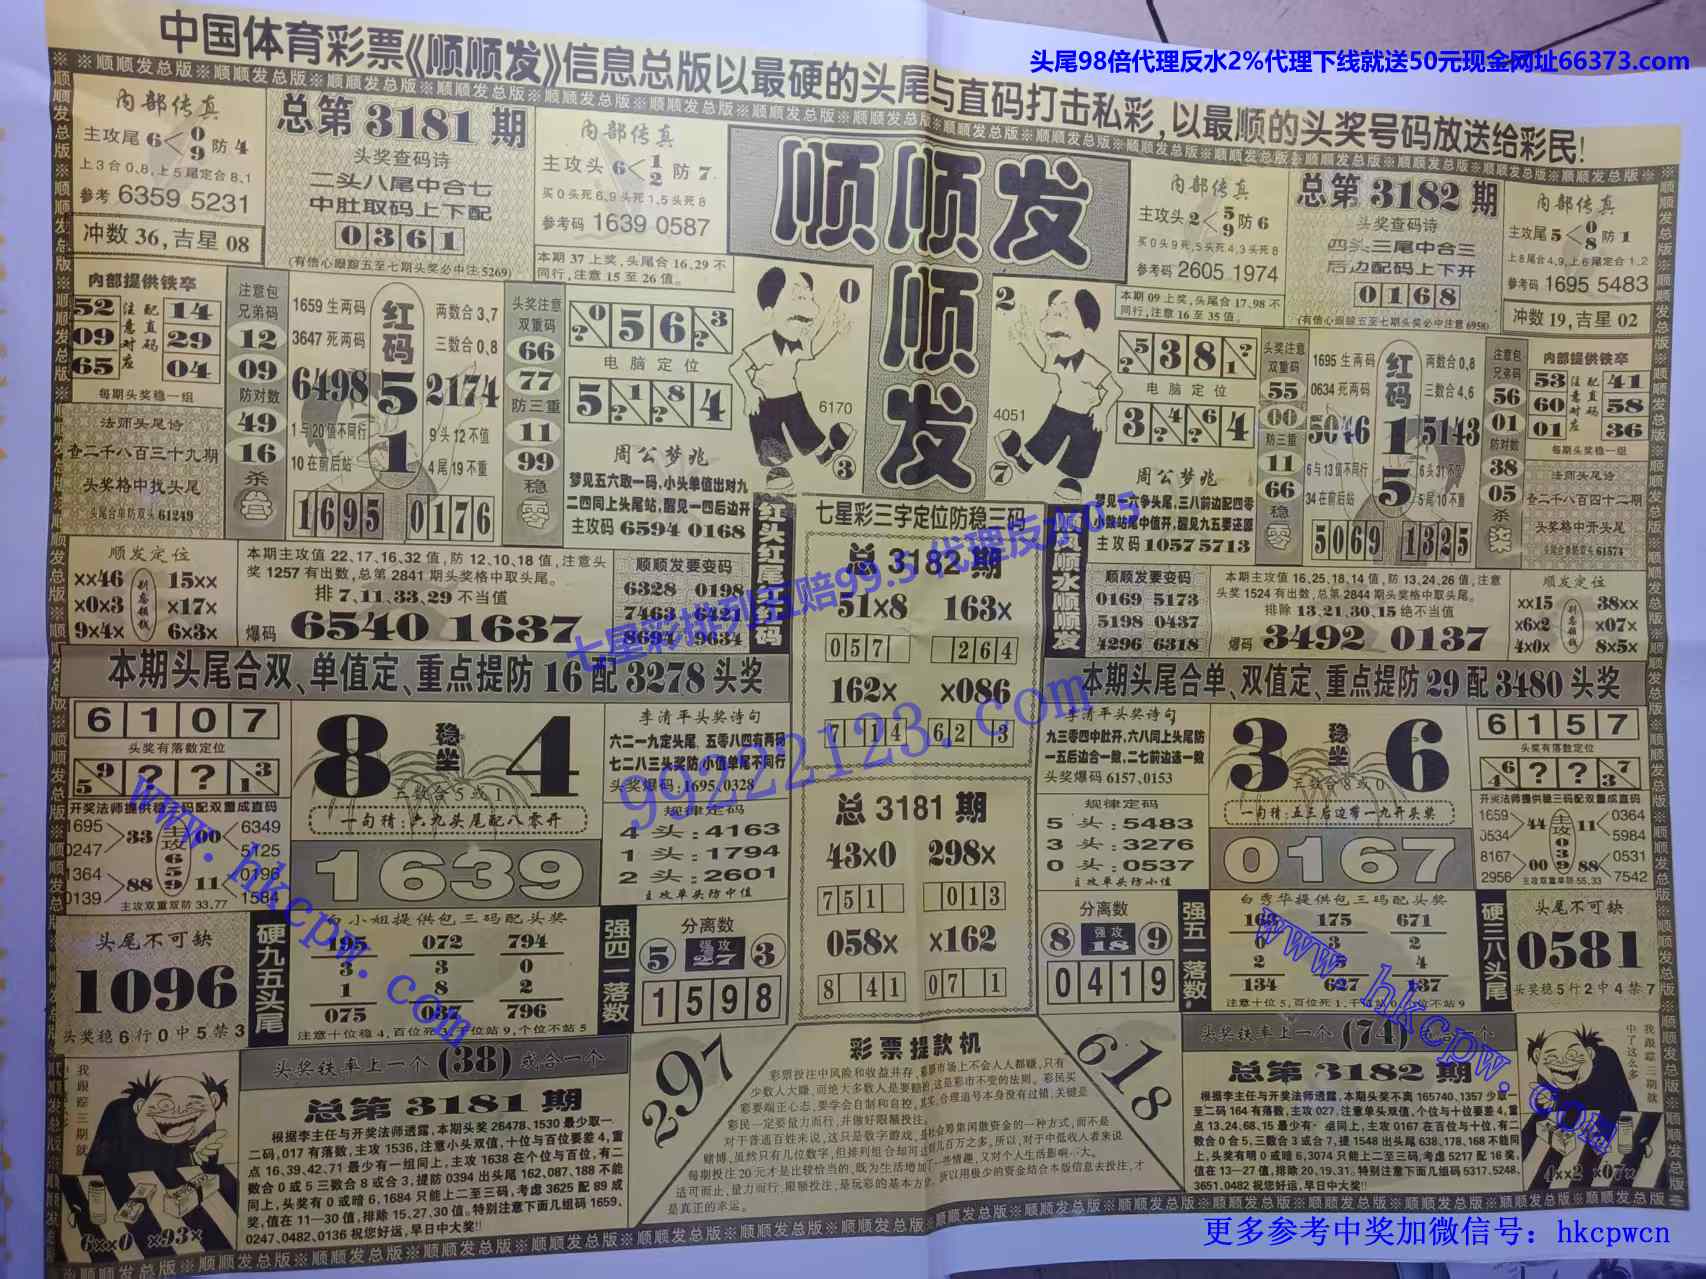 头尾98倍代理反水2%代理下线就送50元现金网址66373.com
中国体育彩票《顺顺发》信息总版以最硬的头尾与直码打击私彩,以最顺的头奖号码放送给彩民!
内部传真
主攻尾 6< 0 9 防 4
上3合0.8,上5尾定合8.1
参考 6359 5231
冲数 36,吉星 08
总第 3181 期
头奖查码诗
二头八尾中合七
中肚取码上下配
0 3 6 1
(有信心跟踪五至七期头奖必中注5269)
内部传真
主攻头 6< 1 2 防 7
买0头死6,9头死1,5头死8
参考码 1639 0587
本期 37 上奖,头尾合 16,29 不
同行,注意 15 至 26 值。
顺顺发
顺
发
内部传真
主攻头 2< 5 9 防 6
买0头9死,5头死4,3头死8
参考码 2605 1974
本期 09 上奖,头尾合 17,98 不
同行,注意 16 至 35 值。
总第 3182 期
头奖查码诗
四头三尾中合三
后边配码上下开
0 1 6 8
(有信心跟踪五至七期头奖必中注意6958)
内部传真
主攻尾 5< 0 8 防 1
上8尾合4.9,上6尾定合1.2
参考码 1695 5483
冲数 19,吉星 02
内部提供铁卒
52 注配 14
09 意直 29
65 04
每期头奖稳一组
法师头尾诗
查二千八百三十九期
头奖格中找头尾
头尾合单防双头 61249
注意包
兄弟码
12
09
防对数
49
16
杀
1659 生两码
3647 死两码
红码
两数合 3,7
三数合 0,8
6498 5 2174
1 与 20 值不同行
10 在前后站
1
9 头 12 不值
4 尾 19 不重
1695 0176
头奖注意
双重码
66
77
防三重
11
99
稳
零
? 0 5 6 3 ?
电脑定位
5 1 ? 8 ? 4
周公梦兆
梦见五六取一码,小头单值出对九
二四同上头尾站,醒见一四后边开
主攻码 6594 0168
0
6170
3
2
4051
7
? 5 3 8 1 ?
电脑定位
3 4 ? 6 ? 4
周公梦兆
梦见一六争头尾,三八前边配四零
小数站尾中值开,醒见九五要还原
主攻码 1057 5713
头奖注意
双重码
55
00
防三重
11
66
稳
零
1695 生两码
0634 死两码
红码
两数合 0,8
三数合 4,6
5046 1 5143
6 与 13 值不同行
34 在前后站
5
5 尾 10 不重
5069 1325
注意包
兄弟码
56
01
防对数
38
05
杀
柒
内部提供铁卒
53 注配 41
60 意直 58
01 对码 36
每期头奖稳一组
法师头尾诗
查二千八百四十二期
头奖格中开头尾
61574
顺发定位
xx46 15xx
x0x3 x17x
9x4x 6x3x
别忘领钱
本期主攻值 22,17,16,32 值,防 12,10,18 值,注意头
奖 1257 有出数,总第 2841 期头奖格中取头尾。
排 7,11,33,29 不当值
爆码 6540 1637
顺顺发要变码
6328 0198
7463 6427
8694 9634
红头红尾红红码
七星彩三字定位防稳三码
总 3182 期
51x8 163x
0 5 7 2 6 4
162x x086
7 1 4 6 2 3
总 3181 期
43x0 298x
7 5 1 0 1 3
058x x162
8 4 1 0 7 1
顺风顺水顺顺发
顺顺发要变码
0169 5173
5198 0437
4296 6318
本期主攻值 16,25,18,14 值,防 13,24,26 值,注意
头奖 1524 有出数,总第 2844 期头奖格中取头尾。
排除 13,21,30,15 绝不当值
爆码 3492 0137
顺发定位
xx15 38xx
x6x2 x07x
4x0x 8x5x
别忘领钱
七星彩排列五赔99.5 代理反水0.5
99222123.com
本期头尾合双、单值定、重点提防 16 配 3278 头奖
本期头尾合单、双值定、重点提防 29 配 3480 头奖
6 1 0 7
头奖有落数定位
5 9 ? ? 1 3
开奖法师提供稳三码配双重成直码
1695 33 主攻 00 6349
0247 6 5125
1364 5 0196
0139 88 9 11 1584
主攻双重双防 33,77
8 稳坐 4
三数合 5 或 1
一句精:六九头尾配八零开
1639
李清平头奖诗句
六二一九定头尾 五零八四有两码
七二八三头奖防 小值单尾不同行
头奖爆码:1695,0328
规律定码
4 头:4163
1 头:1794
2 头:2601
主攻单头防中值
李清平头奖诗句
九三零四中肚开,六八同上头尾防
一五后边合一数,二七前边选一数
头奖爆码 6157,0153
规律定码
5 头:5483
3 头:3276
0 头:0537
主攻单头防小值
3 稳坐 6
三数合 8 或 0
一句精:五三后边带一九开头奖
0167
6 1 5 7
头奖有落数定位
4 6 ? ? 3 7
开奖法师提供稳三码配双重成直码
1659 44 主攻 11 0364
0534 0 5984
8167 3 0531
2956 00 9 88 7542
主攻双重单防 55,33
头尾不可缺
1096
头奖稳 6 行 0 中 5 禁 3
硬九五头尾
白小姐提供包三码配头奖
195 072 794
3 3 0
1 8 2
075 037 796
注意十位稳 4,百位死 3,千位站 9,个位不站 5
强四一落数
分离数
5 强攻 27 3
1 5 9 8
分离数
8 强攻 18 9
0 4 1 9
强五一落数
白秀华提供包三码配头奖
163 175 671
6 3 2
2 5 4
134 627 137
硬三八头尾
头尾不可缺
0581
头奖稳 5 行 2 中 4 禁 7
www.hkcpw.com
www.hkcpw.com
我跟踪三期就
6xx0 x93x
头奖铁率上一个 (38) 或合一个
总第 3181 期
根据李主任与开奖法师透露,本期头奖 26478,1530 最少取一、
二码,017 有落数,主攻 1536,注意小头双值,十位与百位要差 4,重
点 16,39,42,71 最少有一组同上,主攻 1638 在个位与百位,有二
数合 0 或 5 三数合 8 或合 3,提防 0394 出头尾 162,087,188 不能
同上,头奖有 0 或暗 6,1684 只能上二至三码,考虑 3625 配 89 成
奖,值在 11—30 值,排除 15,27,30 值。特别注意下面几组码 1659,
0247,0482,0136 祝您好运,早日中大奖!!
297
彩票提款机
彩票投注中风险和收益并存,彩票市场上不会人人都赚,只有
少数人大赚,而绝大多数人是要赔的,这是彩市不变的法则。彩民买
彩要端正心态,要学会自制和自控,其实,合理追号本身没有过错,关键是
彩民一定要量力而行,并做好限额投注。
每期投注 20 元才是比较恰当的,既为生活增加
适可而止,量力而行,限额投注,是玩彩的基本方
是真正的幸运。
618
头奖铁率上一个 (74) 或合一个
总第 3182 期
根据李主任与开奖法师透露,本期头奖不离 165740,1357 少取一
至二码 164 有落数,主攻 027,注意单头双值,个位与十位要差 4,重
点 13,24,68,15 最少有一组同上,主攻 0167 在百位与十位,有二
数合 0 合 5,三数合 3 或合 7,提 1548 出头尾 638,178,168 不能同
上,头奖有明 0 或暗 6,3074 只能上二至三码,考虑 5217 配 16 奖,
值在 13—27 值,排除 20,19,31。特别注意下面几组码 5317,5248,
3651,0482 祝您好运,早日中大奖!!
我跟踪三期就
中了这么多
4xx2 x07x
更多参考中奖加微信号: hkcpwcn